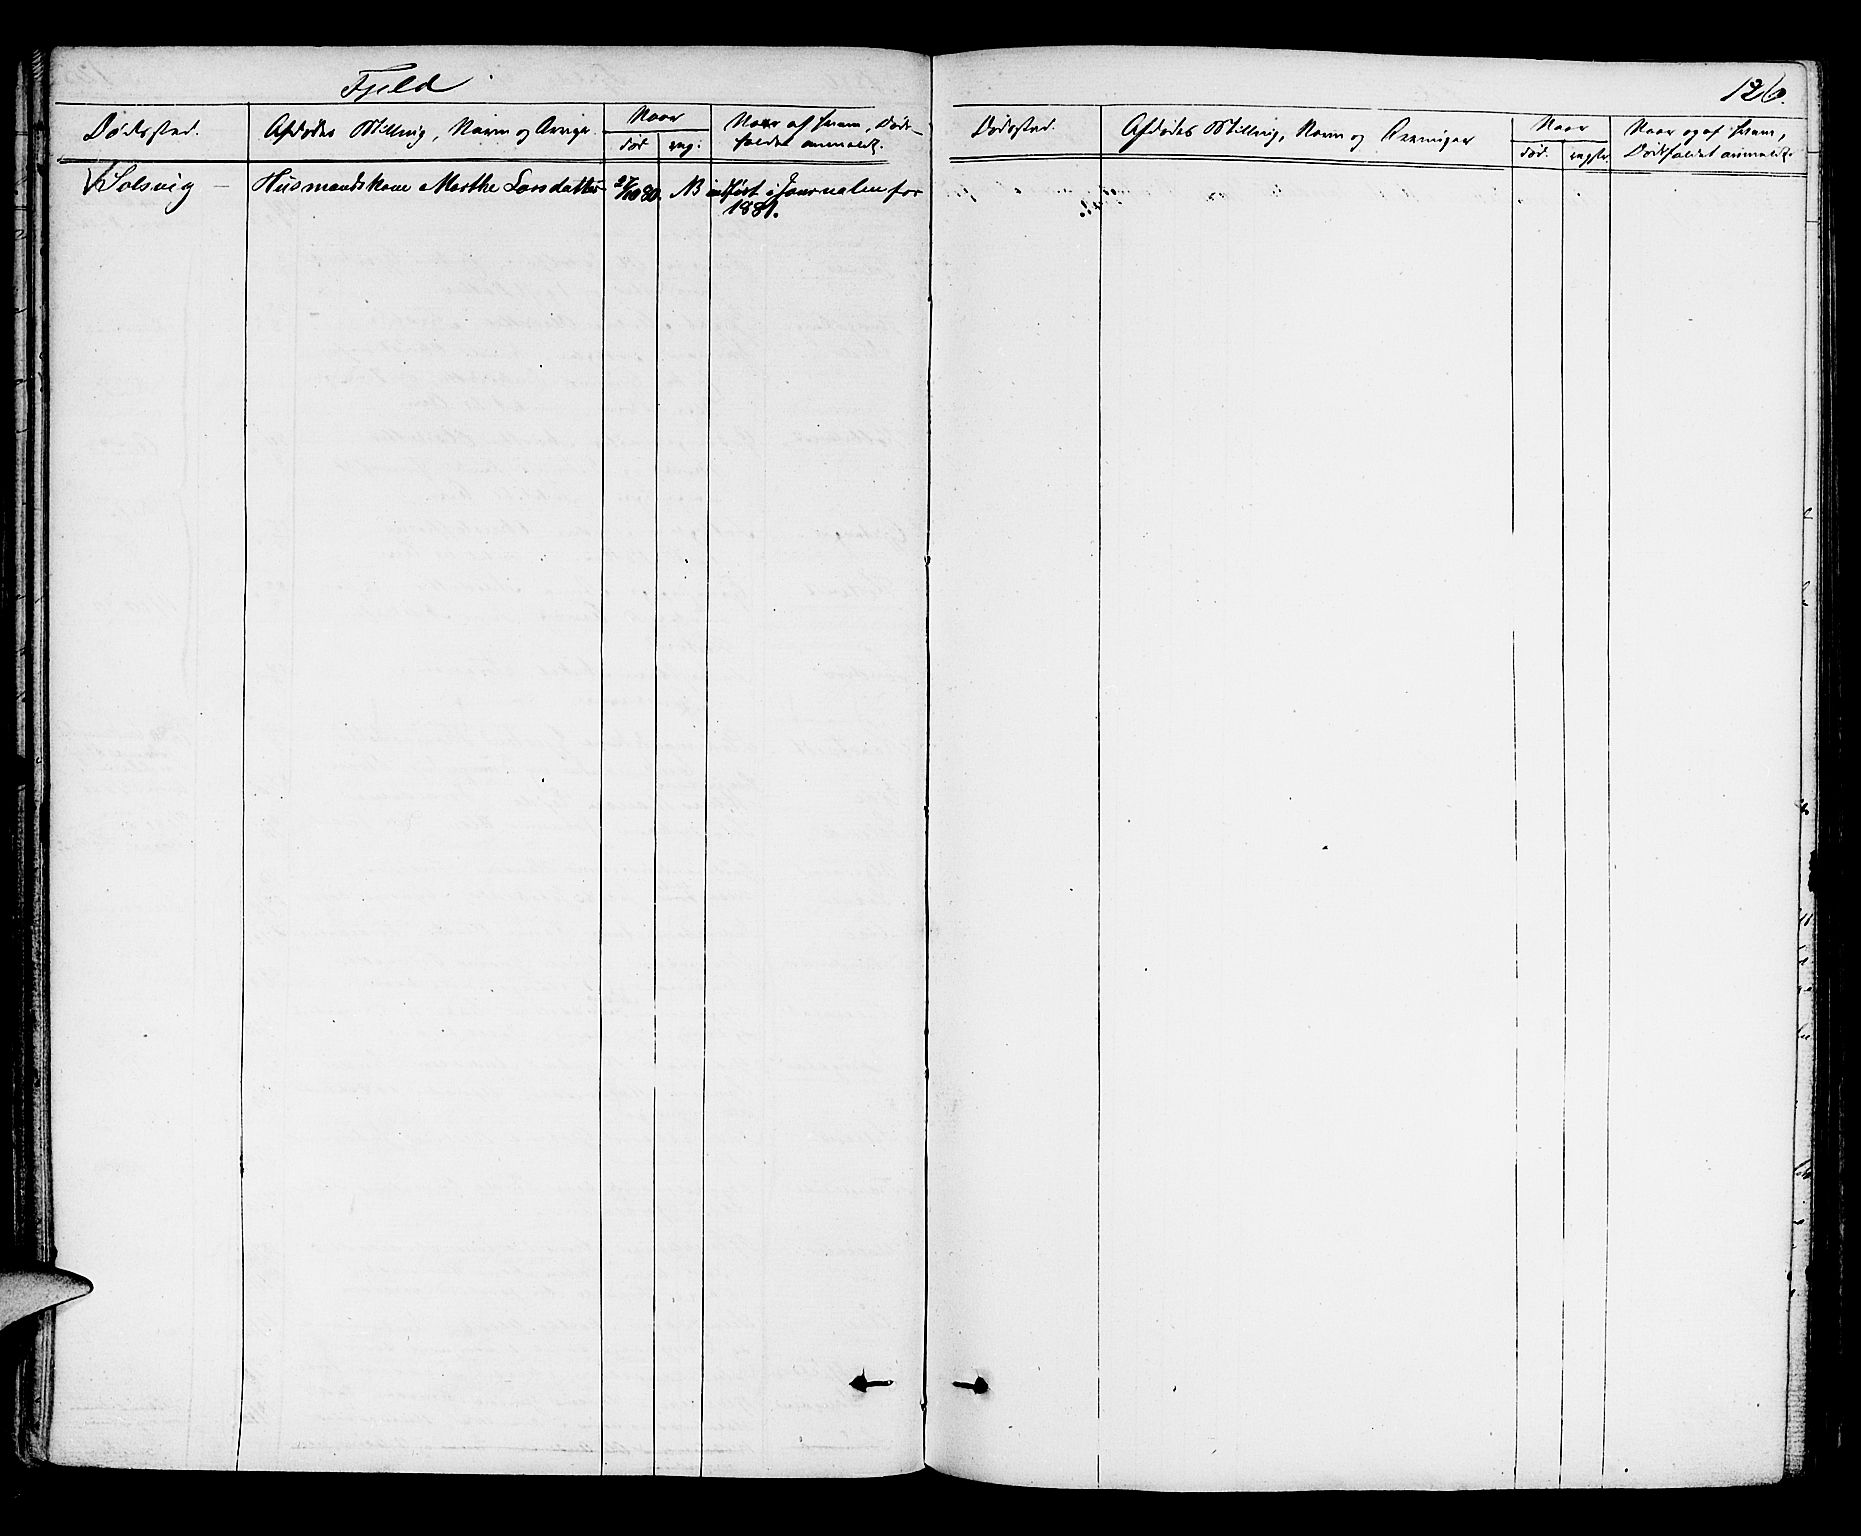 Fjeld
Dødssted.
Afdødes Stilling, Navn og Arvinger.
Naar
død
reg:
Naar af hvem, Døds-
faldet anmeldt.
Solsvig – Husmandskone Marthe Larsdatter 2/10 80. NB indført i Journalen for
1881.
126.
Dødssted.
Afdødes Stilling, Navn og Arvinger
Naar
død.
regstr.
Naar og af hvem,
Dødsfaldet anmeldt.